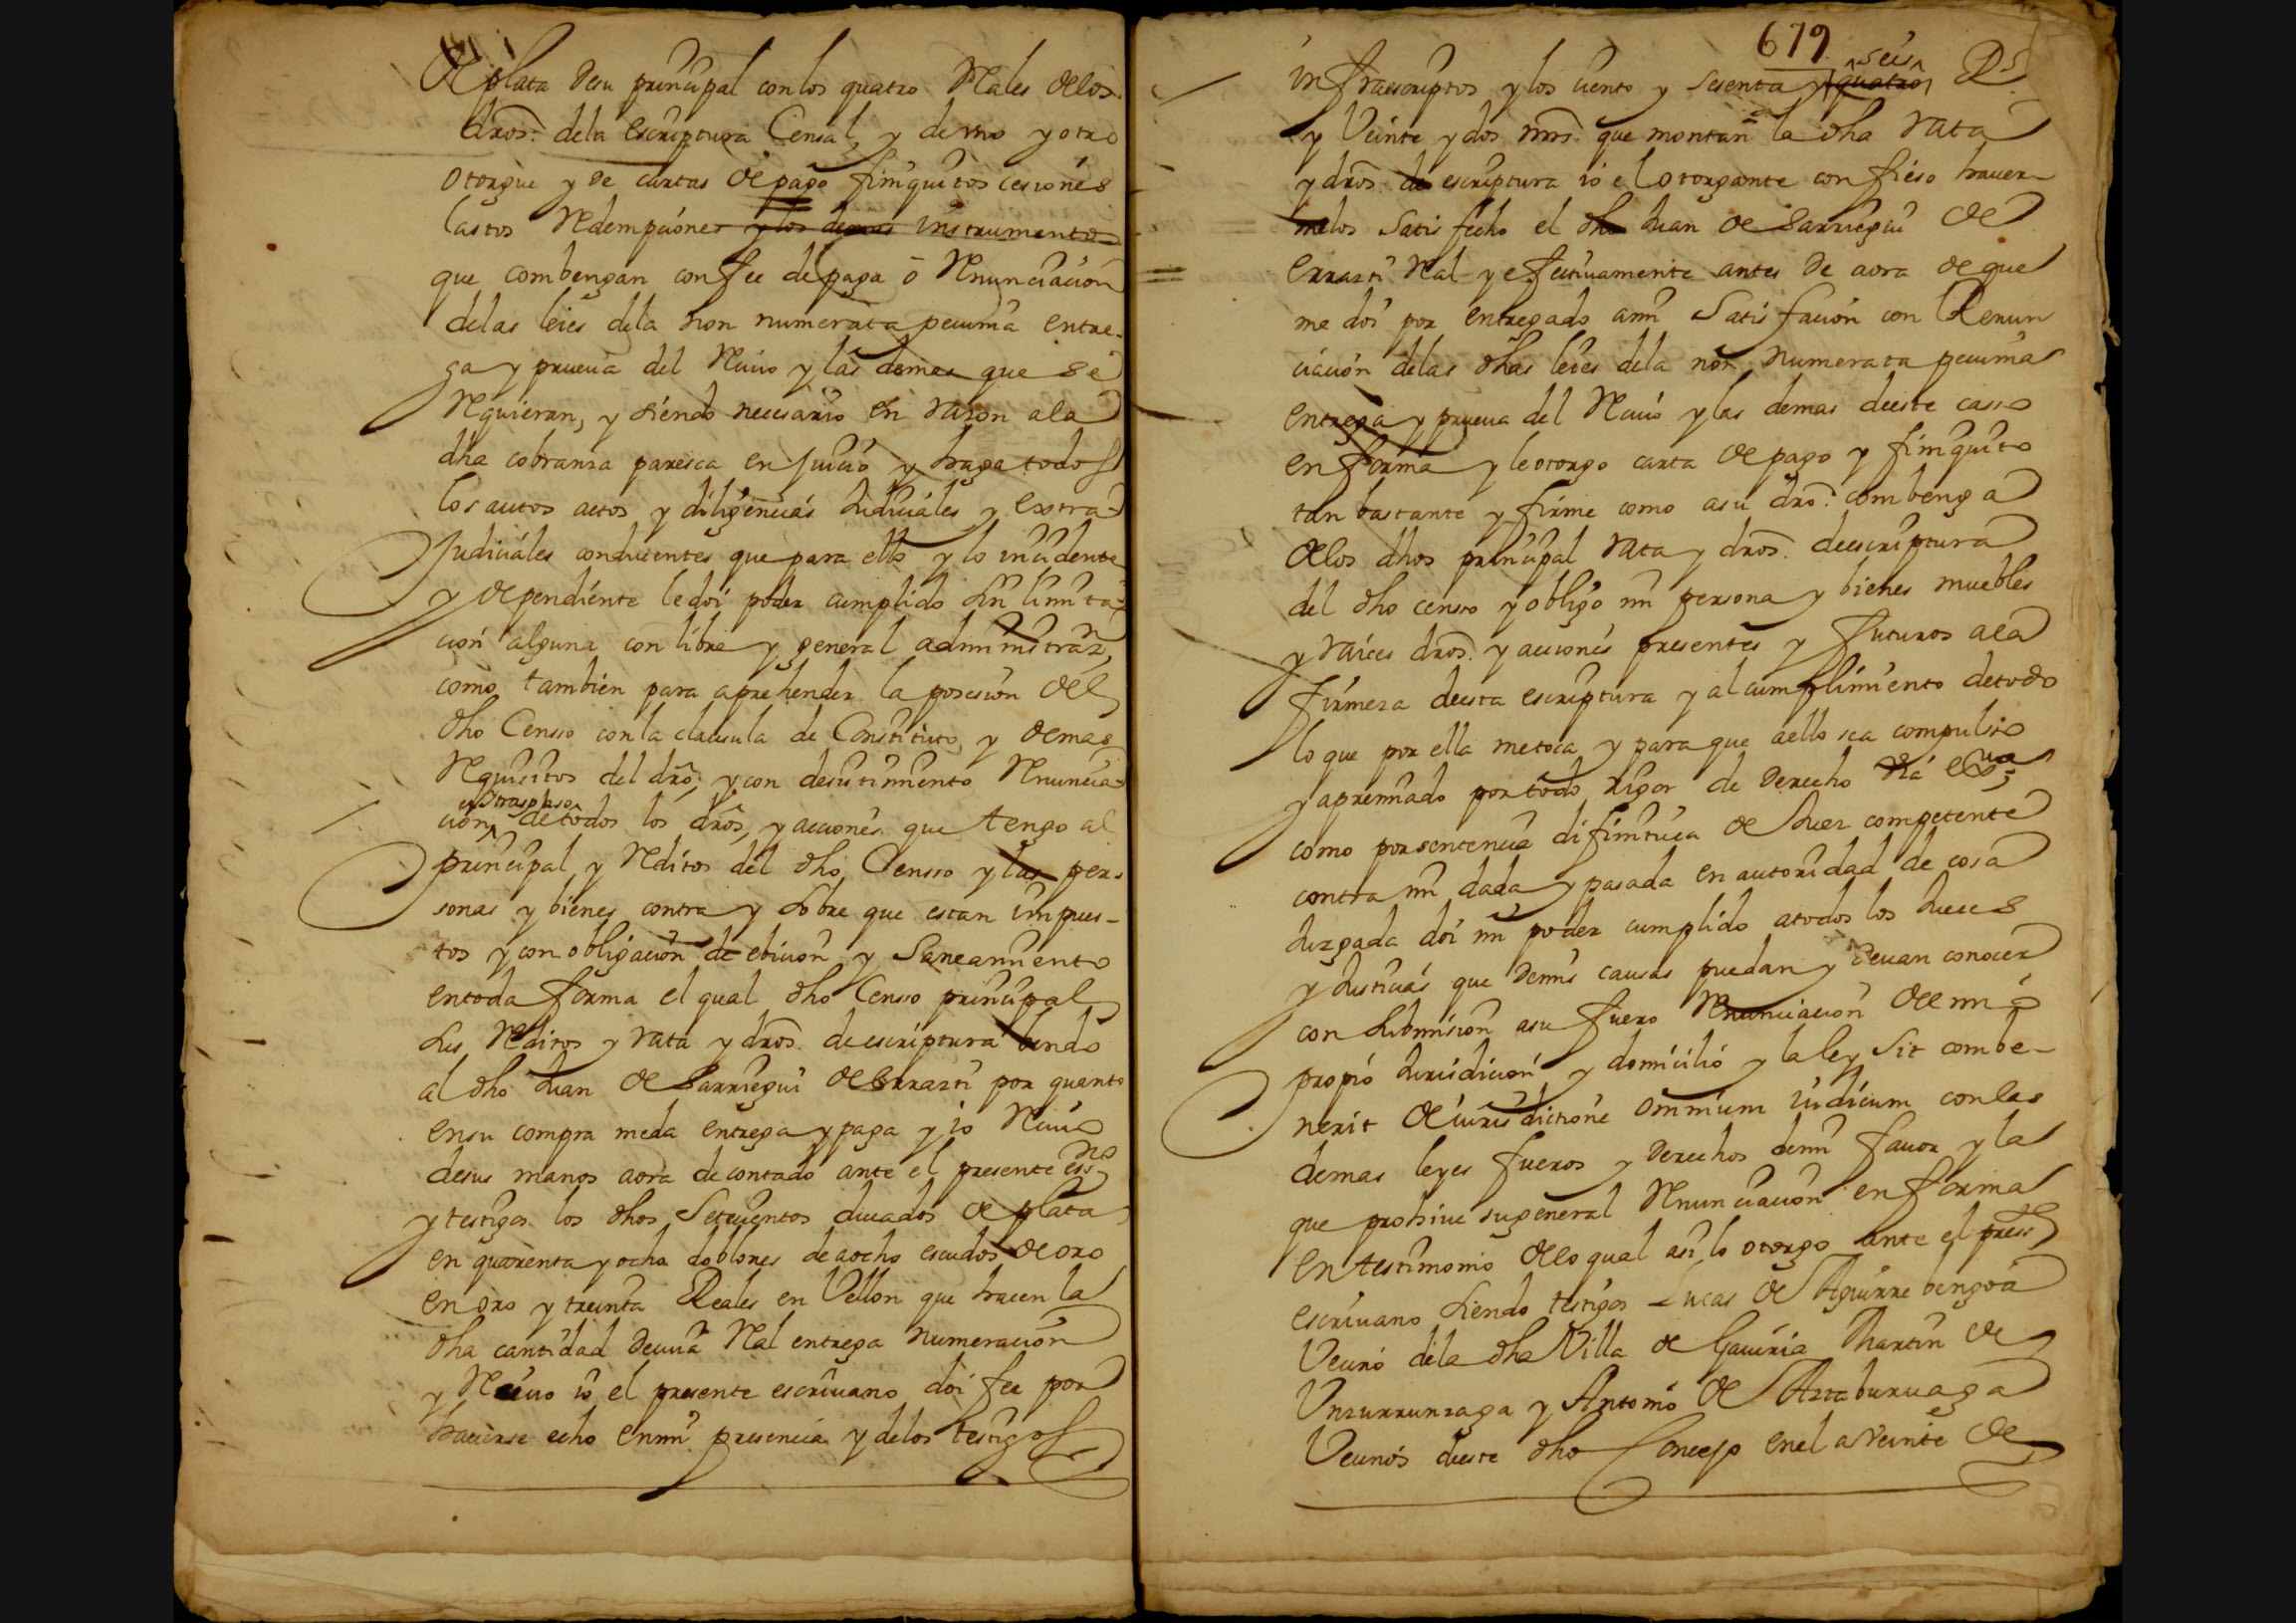 de plata de su principal con los quatro Rales delos
dros. dela escriptura Censal, y de vno y otro
otorgue y de cartas de pago finiquitos cesiones
lastos Redempciones y los demas instrumentos
que combengan con fee de paga o Renunciación
delas leies dela non numerata pecunia entre-
ga y prueua del Reciuo y las demas que se
Requieran, y siendo necesario en rason ala
dha cobransa paresca en Juicio y haga todos
los autos actos y diligencias Judiciales y extra-
Judiciales conducentes que para ello y lo incidente
y dependiente le doi poder cumplido sin limita-
ción alguna con libre y general administraon,
como tambien para aprehender la posesion del
dho Censso con la clausula de Constituto y demas
Requisitos del dro, y con desistimiento Renuncia-
y traspaso
ción de todos los dros, y acciones que tengo al
principal y Reditos del dho Censso y las per-
sonas y bienes contra y sobre que estan impues-
tos y con obligación de ebicion y Saneamiento
entoda forma el qual dho Censso principal
sus Reditos y rata y dros. de escriptura bendo
al dho Juan de Sarriegui de Errasti por quanto
ensu compra me da entrega y paga y io Reciuo
desus manos aora de contado ante el presente essno
y testigos los dhos Setecientos ducados de plata
en quarenta y ocho doblones de aocho escudos de oro
en oro y treinta Reales en Vellon que hacen la
dha cantidad de cuia Ral entrega numeración
y Reciuo io el presente escriuano doi fee por
hauerse echo en mi presencia y delos testigos
679
seis
infraescriptos y los ciento y sesenta y quatro Rs
y Veinte y dos mrs. que montan la dha rata
y dros. de escriptura io el otorgante confieso hauer-
melos satisfecho el dho Juan de Sarriegui de
Errasti Ral y efectiuamente antes de aora de que
me doi por entregado a mi Satisfación con Renun
ciación delas dhas leies dela non numerata pecunia
entrega y prueua del Reciuo y las demas deeste casso
en forma y le otorgo carta de pago y finiquito
tan bastante y firme como asu dro. combenga
delos dhos principal rata y dros. de escriptura
del dho censso y obligo mi persona y bienes muebles
y raíces dros. y acciones presentes y futuros ala
firmesa deesta escriptura y al cumplimiento de todo
lo que por ella me toca y para que aello sea compulso
y apremiado por todo rigor de derecho
como por sentencia difinitiua de Juez competente
contra mi dada y pasada en autoridad de cosa
Juzgada doi mi poder cumplido a todos los Jueces
y Justicias que de mis causas puedan y deuan conocer
con Submision asu fuero Renunciacion de mi
propio Jurisdicion y domicilio y la ley Sit combe-
nerit de iurisdictione omnium iudicum con las
demas leyes fueros y derechos de mi fauor y la
que prohiue su general Renunciación en forma
En testimonio delo qual asi lo otorgo ante el presste
escriuano siendo testigos Lucas de Aguirre bengoa
Vecino dela dha Villa de Gauiria Martin de
Vnzurrunzaga y Antonio de Aztaburuaga
Vecinos deeste dho Concejo en el a Veinte de